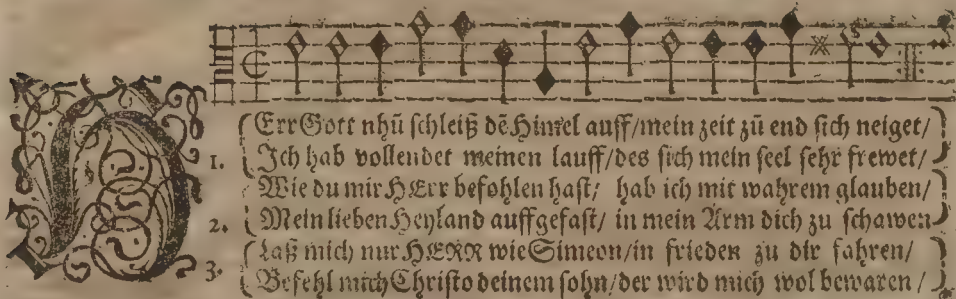 HErr Gott nhũ schleiß dẽ Himel auff/mein zeit zũ end sich neiget/
1. Ich hab vollendet meinen lauff/des sich mein seel sehr frewet/
Wie du mir HErr befohlen hast/ hab ich mit wahrem glauben/
2. Mein lieben Heyland auffgefast/ in mein Ärm dich zu schawen
Laß mich nur HERR wie Simeon/in frieden zu dir fahren/
3. Befehl mich Christo deinem sohn/der wird mich wol bewaren/